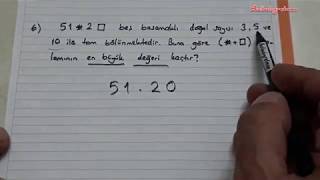 6) 51*2□ beş basamaklı doğal sayısı 3, 5 ve
10 ile tam bölünmektedir. Buna göre (*+□)
lamının en büyük değeri kaçtır?
51.20